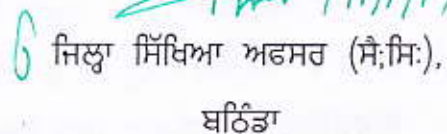 ਜਿਲ੍ਹਾ ਸਿੱਖਿਆ ਅਫਸਰ (ਸੈ;ਸਿ:),
ਬਠਿੰਡਾ